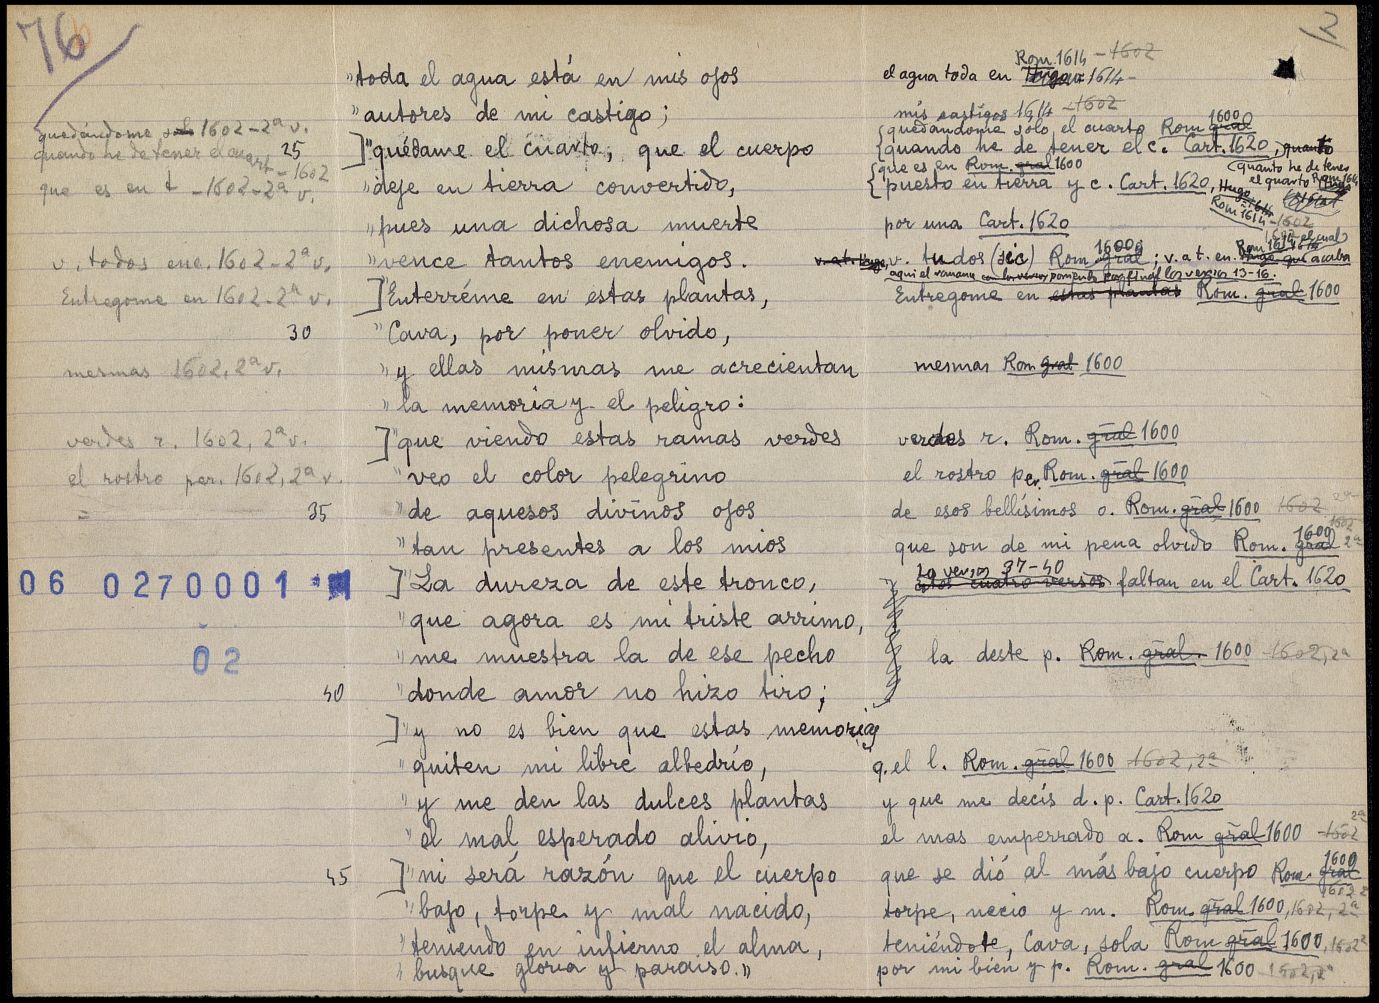 76
2
"toda el agua está en mis ojos
"autores de mi castigo;
25 ]"quédame el cuarto, que el cuerpo
"deje en tierra convertido,
"pues una dichosa muerte
"vence tantos enemigos.
]"Enterréme en estas plantas,
30 "Cava, por poner olvido,
"y ellas mismas me acrecientan
"la memoria y el peligro:
]"que viendo estas ramas verdes
"veo el color pelegrino
35 "de aquesos divinos ojos
"tan presentes a los mios
]"La dureza de este tronco,
"que agora es mi triste arrimo,
"me muestra la de ese pecho
40 "donde amor no hizo tiro;
]"y no es bien que estas memorias
"quiten mi libre albedrío,
"y me den las dulces plantas
"el mal esperado alivio,
45 ]"ni será razón que el cuerpo
"bajo, torpe y mal nacido,
"teniendo en infierno el alma,
"busque gloria y paraiso."
quedándome solo 1602-2ª v.
quando he de tener el cuart - 1602
que es en t - 1602-2ª v.
v. todos ene. 1602-2ª v.
Entregome en 1602-2ª v.
mesmas 1602, 2ª v.
verdes r. 1602, 2ª v.
el rostro per. 1602, 2ª v.
=
06 0270001
02
el agua toda en Rom. 1614 - 1602
1614 -
mis castigos 1614 - 1602
quedandome solo el cuarto Rom gral 1600
quando he de tener el c. Cart. 1620, quanto
(quanto he de tener
el quarto Rom 1614
que es en Rom. gral 1600
puesto en tierra y c. Cart. 1620, Hugo 1614
Rom 1614 - 1602
por una Cart. 1620
v. tudos (sic) Rom gral 1600; v. a t. en. Rom 1614
aqui el romance con los versos
final los versos 13-16.
Entregome en estas plantas Rom. gral 1600
mesmas Rom gral 1600
verdes r. Rom. gral 1600
el rostro per. Rom. gral 1600
de esos bellísimos o. Rom. gral 1600 1602 2ª
que son de mi pena olvido Rom. gral 1600 1602 2ª
Lo versos 37-40
estos cuatro versos faltan en el Cart. 1620
la deste p. Rom. gral. 1600 1602, 2ª
q. el l. Rom. gral 1600 1602, 2ª
y que me decís d. p. Cart. 1620
el mas emperrado a. Rom gral 1600 1602 2ª
que se dió al más bajo cuerpo Rom. gral 1600
1602 2
torpe, necio y m. Rom. gral 1600, 1602, 2ª
teniéndote, Cava, sola Rom gral 1600, 1602 2
por mi bien y p. Rom. gral 1600 1602, 2ª